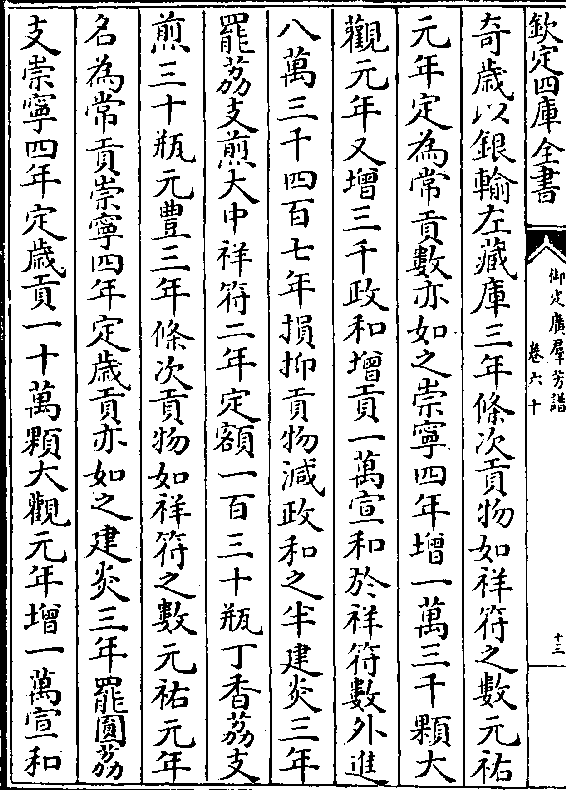 欽定四庫全書
御定廣羣芳譜
卷六十
十三
奇歲以銀輸左藏庫三年條次貢物如祥符之數元祐
元年定為常貢數亦如之崇寧四年增一萬三千顆大
觀元年又增三千政和增貢一萬宣和於祥符數外進
八萬三千四百七年損抑貢物減政和之半建炎三年
罷荔支煎大中祥符二年定額一百三十瓶丁香荔支
煎三十瓶元豐三年條次貢物如祥符之數元祐元年
名為常貢崇寧四年定歲貢亦如之建炎三年罷圓荔
支崇寧四年定歲貢一十萬顆大觀元年增一萬宣和